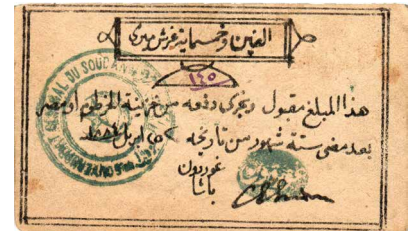 الفين وخمسماية غرش ميرى
١٤٥
هذا المبلغ مقبول ويجرى دفعه من خزينة الخرطوم او مصر
بعد مضى ستة شهور من تاريخه ٢٥ ابريل ١٨٨٤
غوردون
باشا
DU SOUDAN